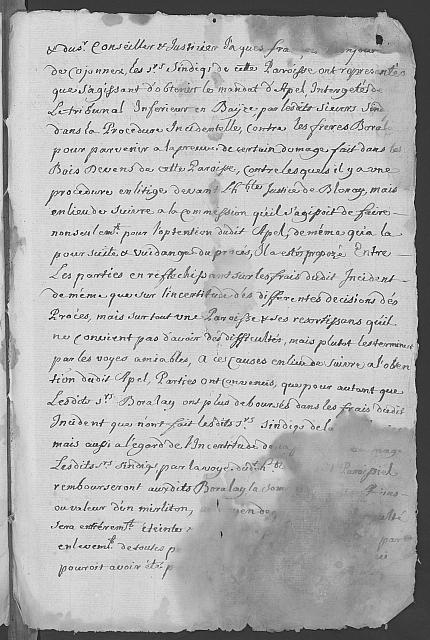 & du s.r Conseiller & Justicier Jaques fra
de Cojonnex, les s.rs Sindiqs de cette Paroisse ont representé
que s'agissant d'obtenir le mandat d'Apel Intergetté de
Le tribunal Inferieur en Baije par lesdits sieurs Sind
dans la Procedure Incidentelle, contre les freres Boral
pour parvenir a la preuve de certain dumage fait dans les
Bois Devens de cette Paroisse, contre lesquels il y a une
procedure en litige devant l'h.ble Justice de Blonay, mais
en lieu de suivre a la commession qu'il s'agissoit de faire
non seulem.t pour l'optention dudit Apel, de méme qu'a la
poursuitte & vuidange du procés, Il a esté propozé Entre
Les parties en reflechissant sur les frais dudit Incident
de méme que sur l'incertitude des differentes decisions des
Procés, mais surtout une Paroisse & ses resortissans qu'il
ne convient pas d'avoir des difficultés, mais plutot les terminer
par les voyes amiables, A ces causes en lieu de suivre a l'oben
tion dudit Apel, Parties ont convenus, que pour autant que
Lesdits s.rs Boralay ont plus debourses dans les frais dudit
Incident que n'ont fait lesdits s.rs Sindiqs de la
mais aussi a l'égard de l'Incertitude de
Lesdits s.rs Sindiqs, par la voye dud.t h.ble Paroissiel
rembourseront auxdits Boralay la som
ou valeur d'un mirliton, en de
sera entierem.t éteinte
enlevem.t de toutes p par
pourroit avoir été p